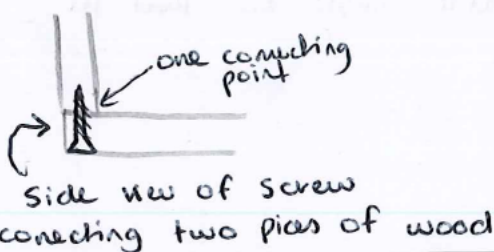 one conecting
point
side view of screw
conecting two pices of wood